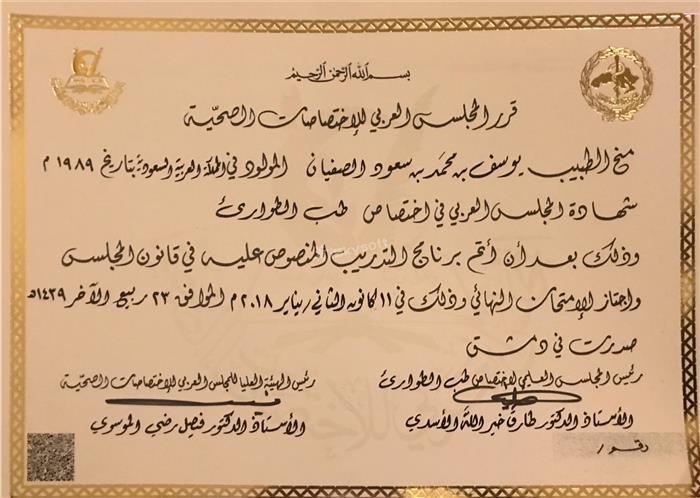 بسم الله الرحمن الرحيم
قرر المجلس العربي للاختصاصات الصحيّة
منح الطبيب يوسف بن محمد بن سعود الصفيان المولود في المملكة العربية السعودية بتاريخ ١٩٨٩ م
شهادة المجلس العربي في اختصاص طب الطوارئ
وذلك بعد أن أتم برنامج التدريب المنصوص عليه في قانون المجلس
واجتاز الإمتحان النهائي وذلك في ١١ كانون الثاني/يناير ٢٠١٨ م الموافق ٢٣ ربيع الآخر ١٤٣٩هـ
صدرت في دمشق
رئيس المجلس العلمي لاختصاص طب الطوارئ
رئيس الهيئة العليا للمجلس العربي للاختصاصات الصحية
الأستاذ الدكتور طارق خير الله الأسدي
الأستاذ الدكتور فيصل رضي الموسوي
رقم /